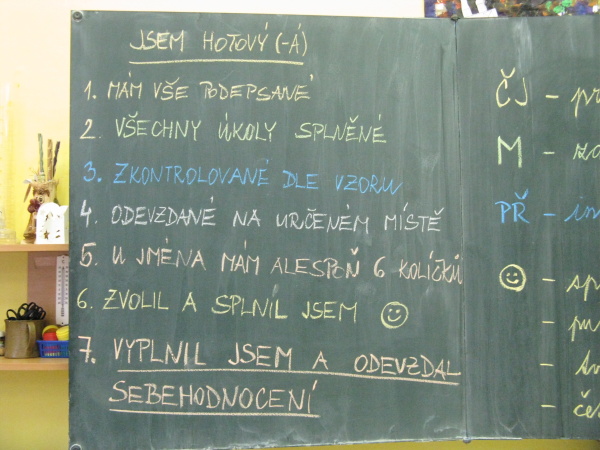 JSEM HOTOVÝ (-Á)
1. MÁM VŠE PODEPSANÉ
2. VŠECHNY ÚKOLY SPLNĚNÉ
3. ZKONTROLOVANÉ DLE VZORU
4. ODEVZDANÉ NA URČENÉM MÍSTĚ
5. U JMÉNA MÁM ALESPOŇ 6 KOLÍČKŮ
6. ZVOLIL A SPLNIL JSEM ☺
7. VYPLNIL JSEM A ODEVZDAL
SEBEHODNOCENÍ
ČJ -
M -
PŘ -
☺ -
-
-
-